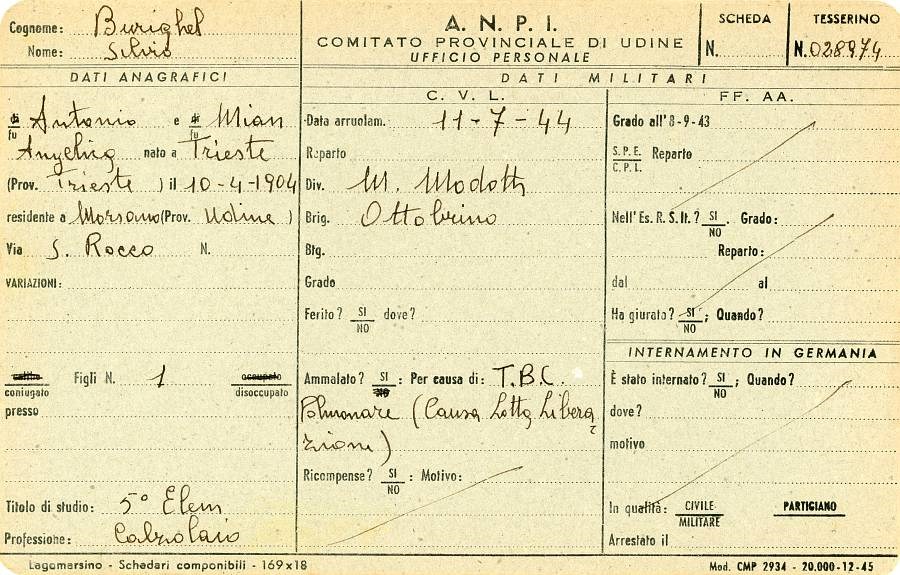 Cognome: Burighel
Nome: Silvio
A. N. P. I.
COMITATO PROVINCIALE DI UDINE
UFFICIO PERSONALE
SCHEDA
N.
TESSERINO
N. 028974
DATI ANAGRAFICI
di fu Antonio e di fu Mian
Angelica nato a Trieste
(Prov. Trieste ) il 10-4-1904
residente a Morsano (Prov. Udine )
Via S. Rocco N.
VARIAZIONI:
celibe coniugato Figli N. 1 occupato disoccupato
presso
Titolo di studio: 5° Elem
Professione: Calzolaio
DATI MILITARI
C. V. L.
Data arruolam. 11-7-44
Reparto
Div. M. Modotti
Brig. Ottobrino
Btg.
Grado
Ferito? SI NO dove?
Ammalato? SI NO : Per causa di: T.B.C.
Polmonare (Causa Lotta Libera
zione)
Ricompense? SI NO : Motivo:
FF. AA.
Grado all'8-9-43
S.P.E. C.P.L. Reparto
Nell'Es. R. S. It.? SI NO . Grado:
Reparto:
dal al
Ha giurato? SI NO ; Quando?
INTERNAMENTO IN GERMANIA
È stato internato? SI NO ; Quando?
dove?
motivo
In qualità: CIVILE MILITARE PARTIGIANO
Arrestato il
Lagomarsino - Schedari componibili - 169x18
Mod. CMP 2934 - 20.000-12-45